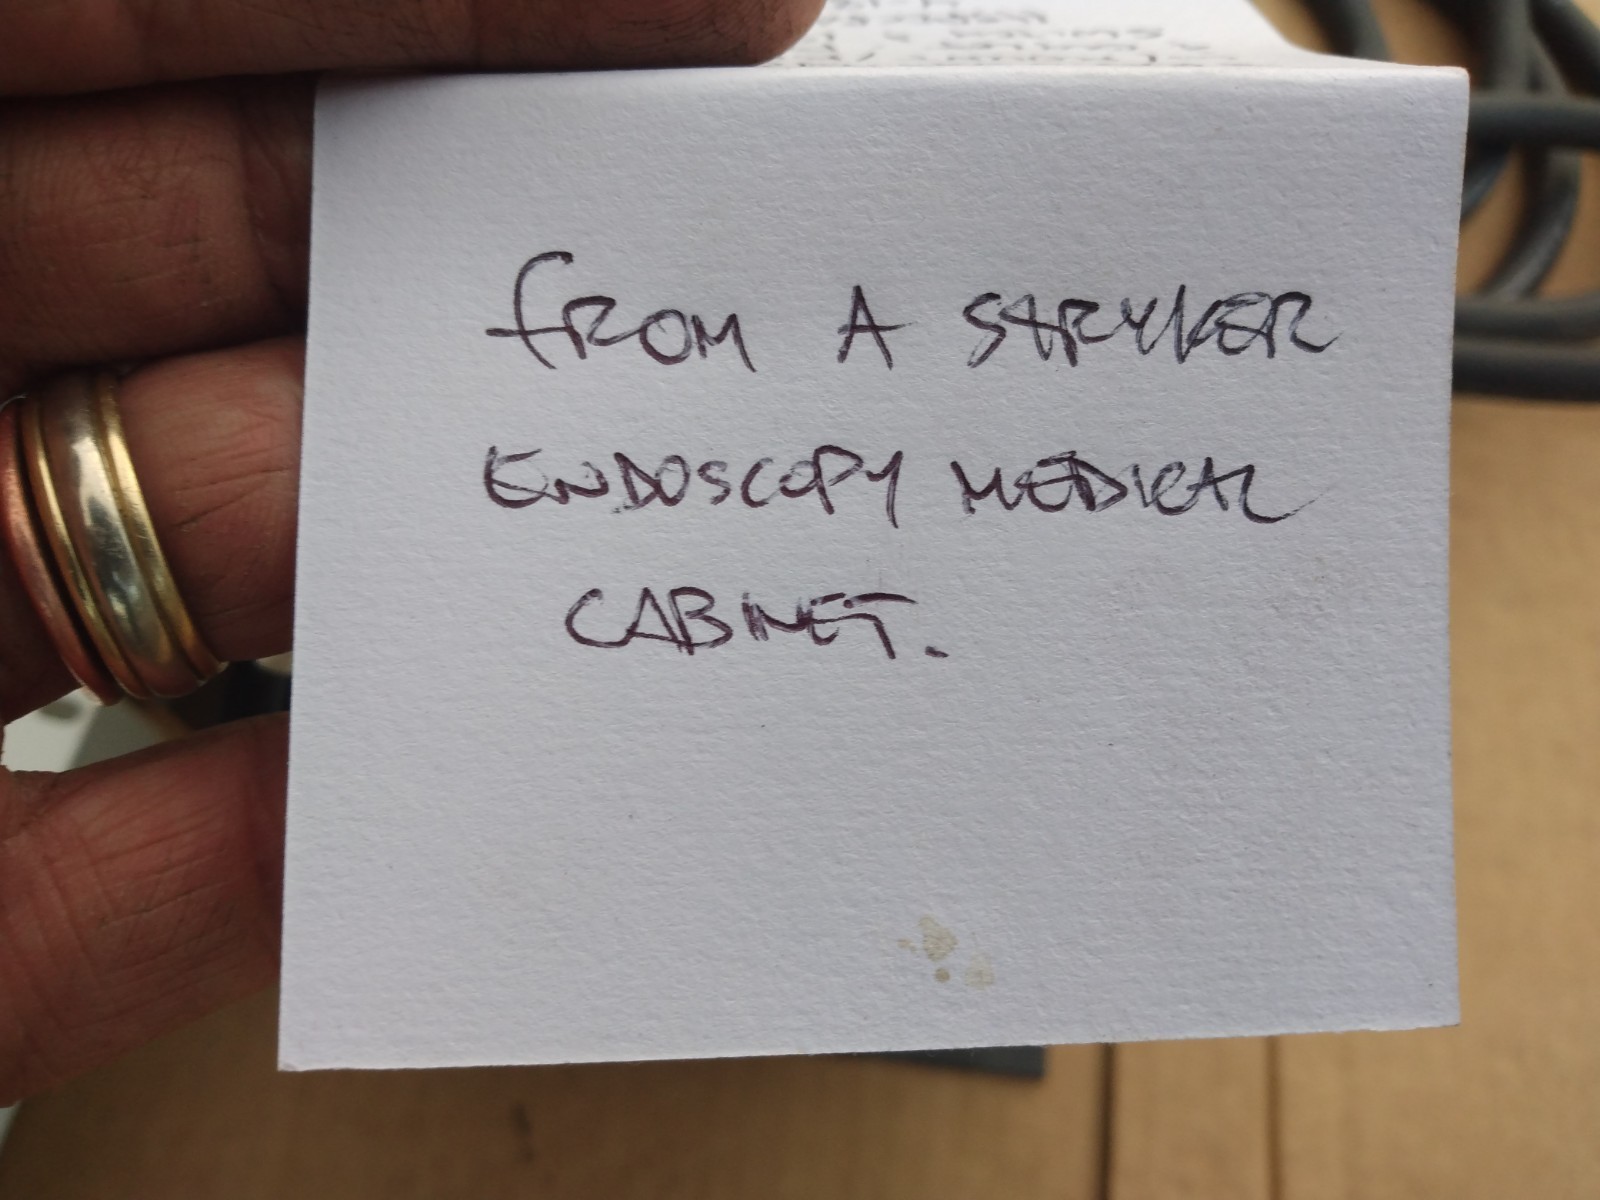 FROM A STRYKER
ENDOSCOPY MEDICAL
CABINET.